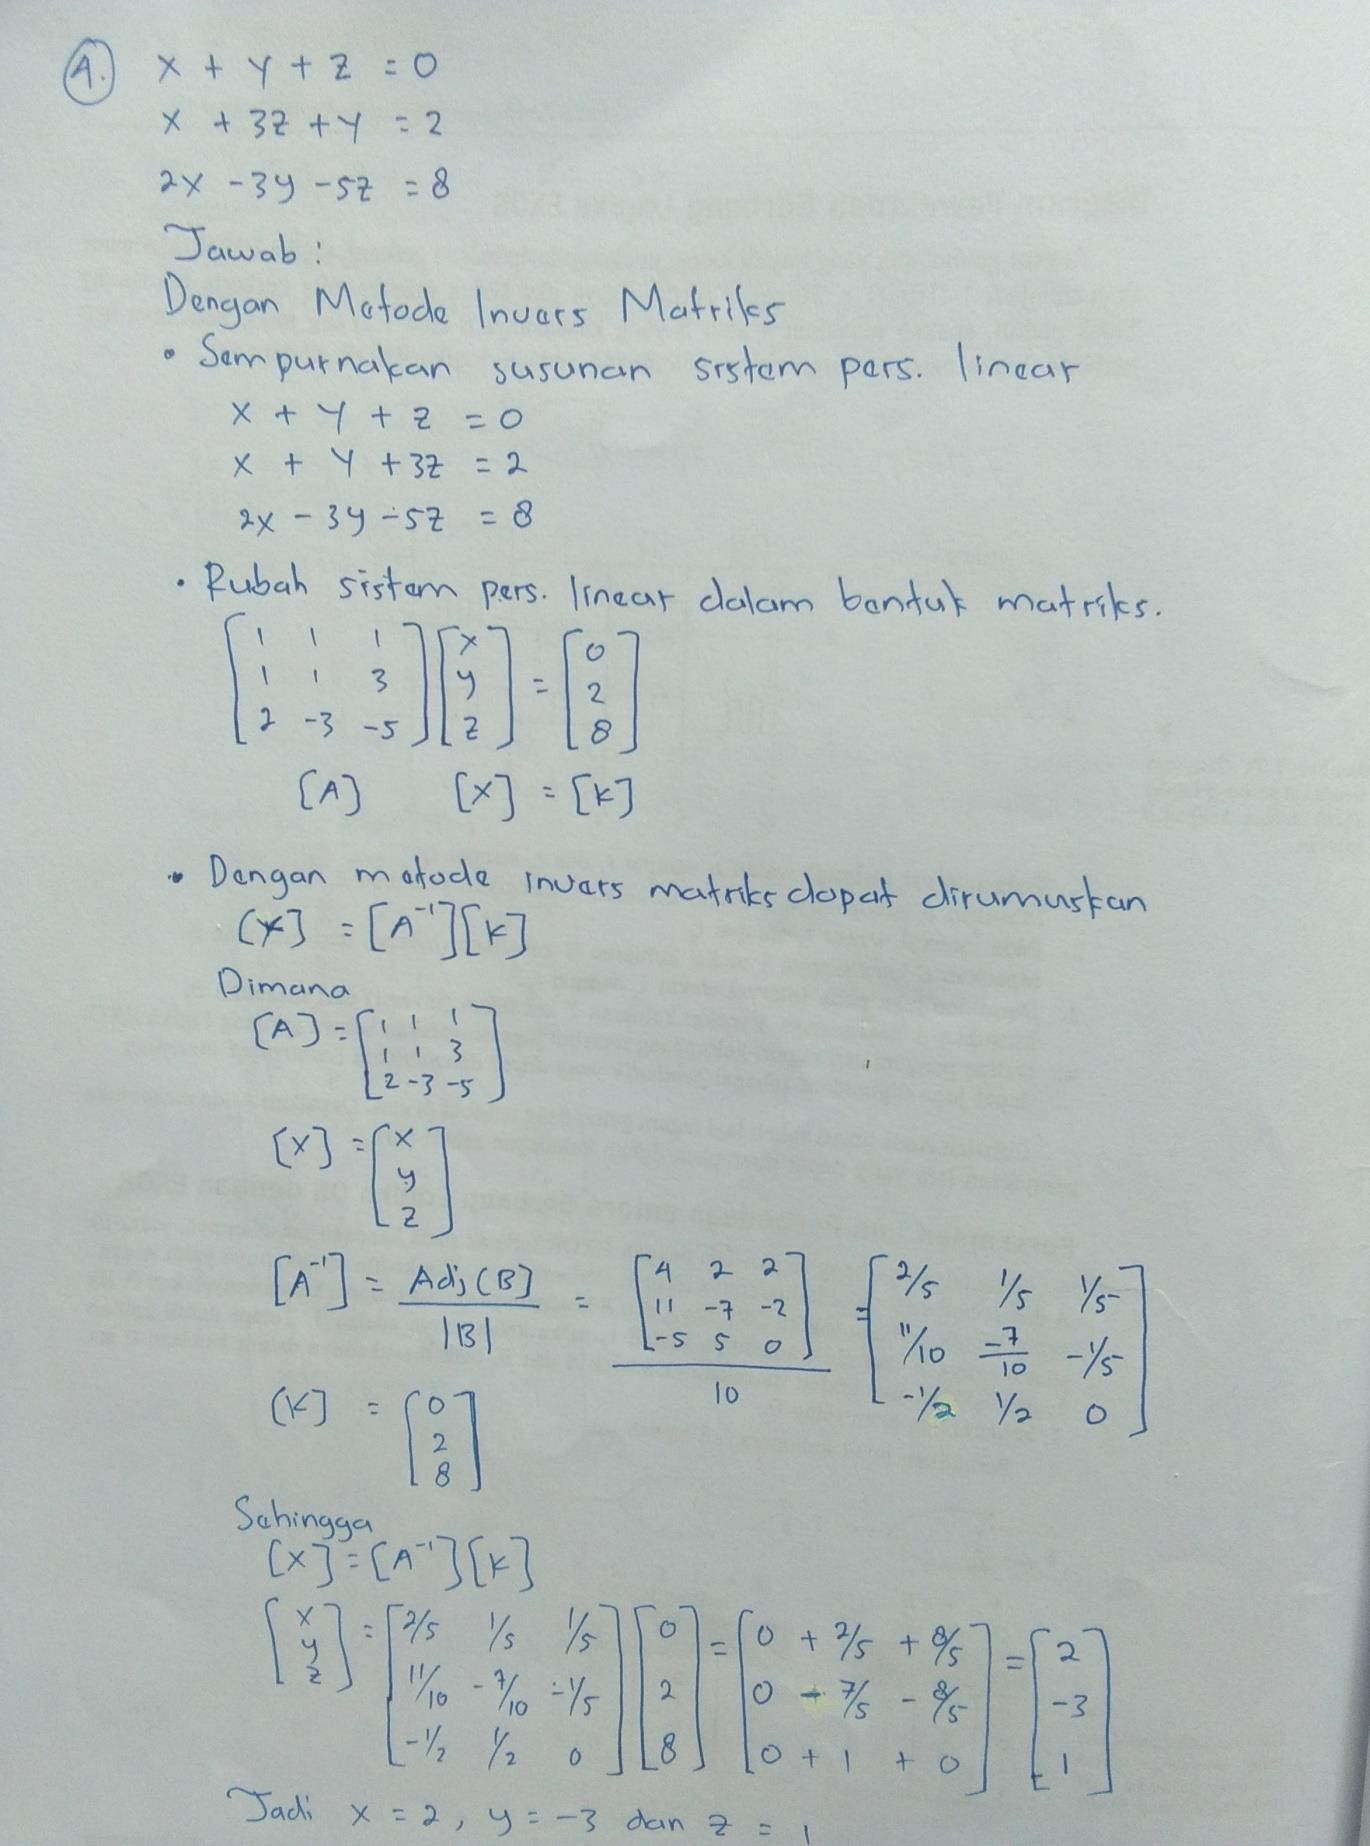 4. x + y + z = 0
x + 3z + y = 2
2x - 3y - 5z = 8
Jawab :
Dengan Metode Invers Matriks
• Sempurnakan susunan sistem pers. linear
x + y + z = 0
x + y + 3z = 2
2x - 3y - 5z = 8
• Rubah sistem pers. linear dalam bentuk matriks.
[1 1 1; 1 1 3; 2 -3 -5] [x; y; z] = [0; 2; 8]
[A] [X] = [K]
• Dengan metode invers matriks dapat dirumuskan
[X] = [A⁻¹][K]
Dimana
[A] = [1 1 1; 1 1 3; 2 -3 -5]
[X] = [x; y; z]
[A⁻¹] = Adj(B) / |B| = [4 2 2; 11 -7 -2; -5 5 0] / 10 = [2/5 1/5 1/5; 11/10 -7/10 -1/5; -1/2 1/2 0]
[K] = [0; 2; 8]
Sehingga
[X] = [A⁻¹][K]
[x; y; z] = [2/5 1/5 1/5; 11/10 -7/10 -1/5; -1/2 1/2 0] [0; 2; 8] = [0 + 2/5 + 8/5; 0 - 7/5 - 8/5; 0 + 1 + 0] = [2; -3; 1]
Jadi x = 2, y = -3 dan z = 1